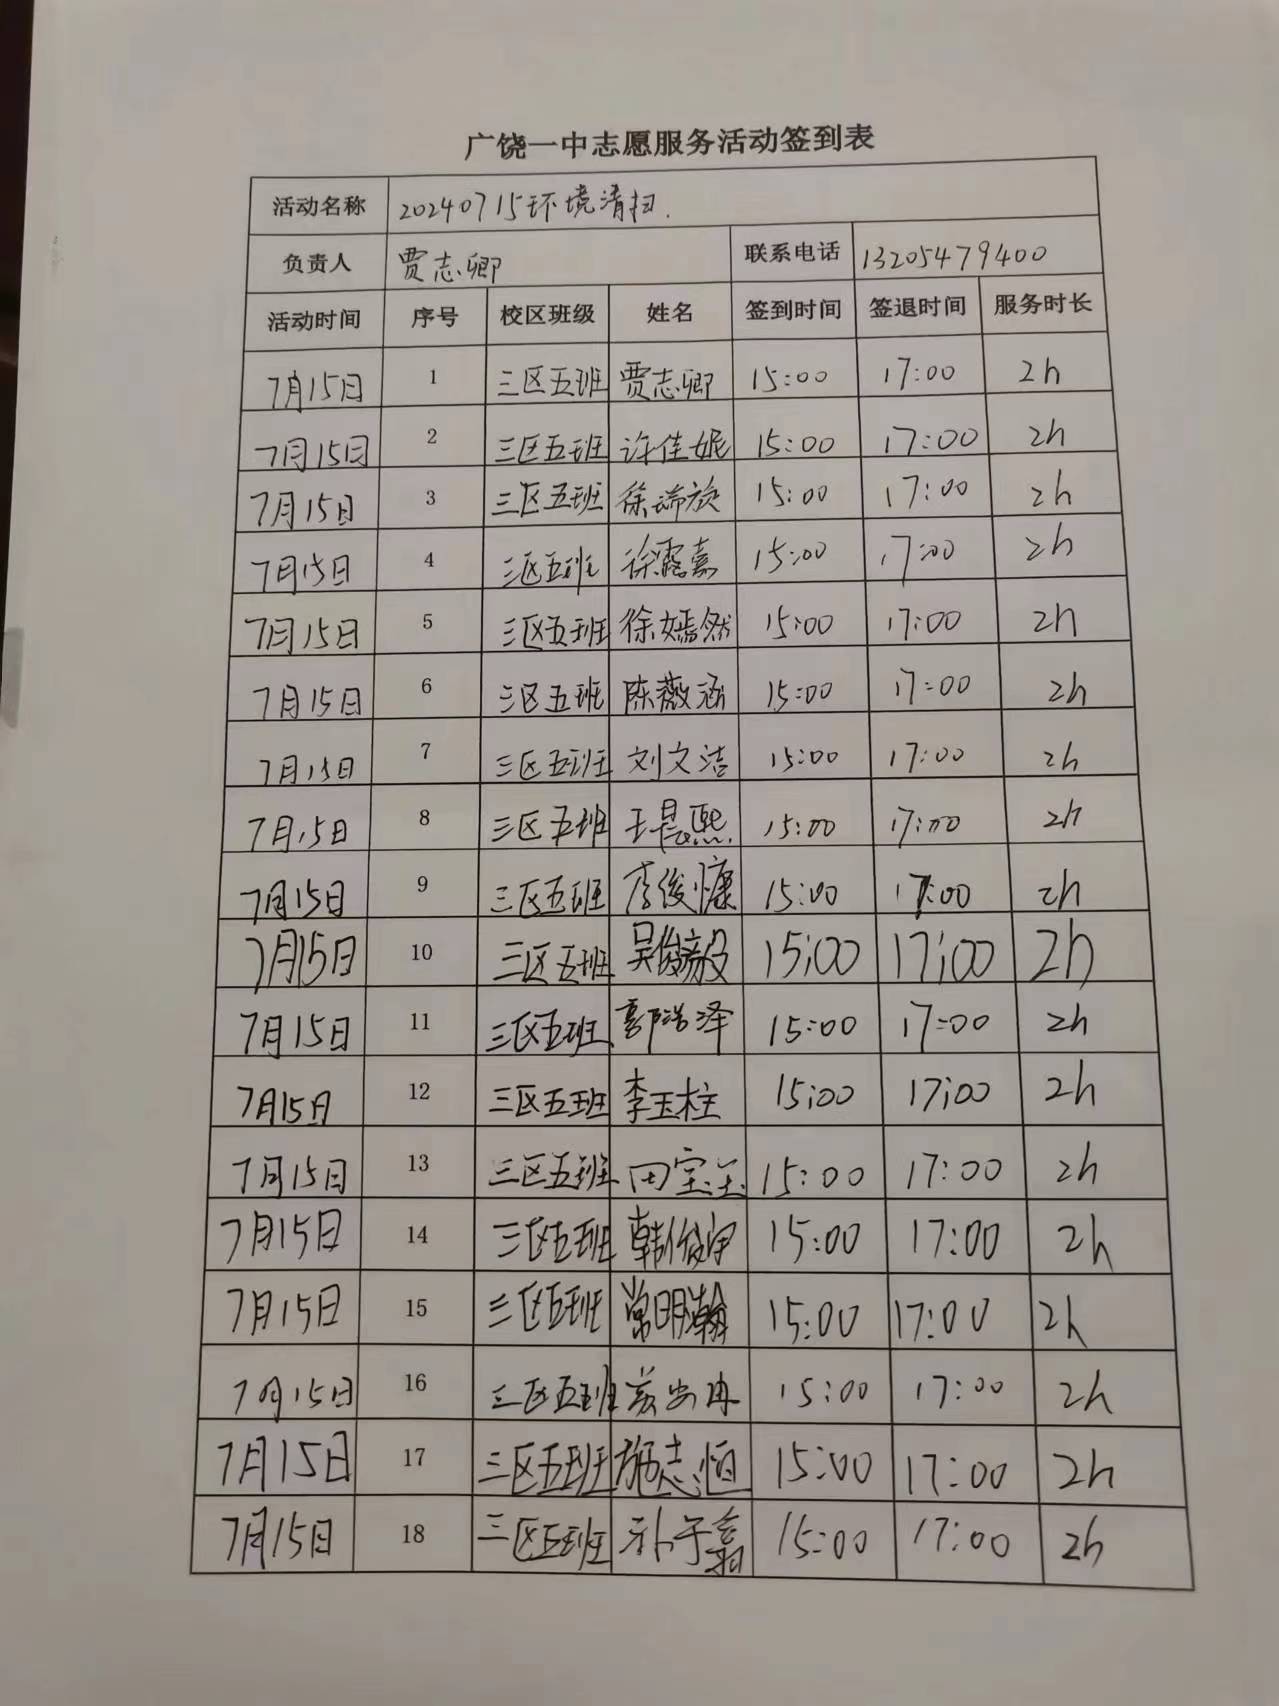 广饶一中志愿服务活动签到表
活动名称 20240715环境清扫.
负责人 贾志卿 联系电话 13205479400
活动时间 序号 校区班级 姓名 签到时间 签退时间 服务时长
7月15日 1 三区五班 贾志卿 15:00 17:00 2h
7月15日 2 三区五班 许佳妮 15:00 17:00 2h
7月15日 3 三区五班 徐瑞旋 15:00 17:00 2h
7月15日 4 三区五班 徐露嘉 15:00 17:00 2h
7月15日 5 三区五班 徐嫣然 15:00 17:00 2h
7月15日 6 三区五班 陈薇涵 15:00 17:00 2h
7月15日 7 三区五班 刘文洁 15:00 17:00 2h
7月15日 8 三区五班 王晨熙 15:00 17:00 2h
7月15日 9 三区五班 李俊慷 15:00 17:00 2h
7月15日 10 三区五班 吴俊毅 15:00 17:00 2h
7月15日 11 三区五班 郭浩泽 15:00 17:00 2h
7月15日 12 三区五班 李玉柱 15:00 17:00 2h
7月15日 13 三区五班 田宝玉 15:00 17:00 2h
7月15日 14 三区五班 韩俊宇 15:00 17:00 2h
7月15日 15 三区五班 常明瀚 15:00 17:00 2h
7月15日 16 三区五班 15:00 17:00 2h
7月15日 17 三区五班 施志恒 15:00 17:00 2h
7月15日 18 三区五班 15:00 17:00 2h